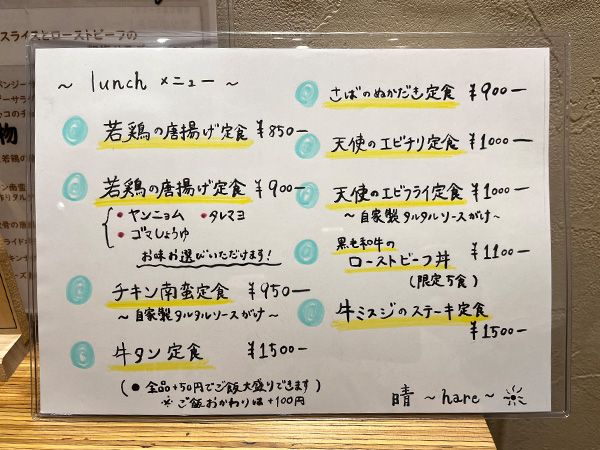 スライスとローストビーフの
物
~ lunch メニュー ~
若鶏の唐揚げ定食 ¥850-
若鶏の唐揚げ定食 ¥900-
• ヤンニョム • タレマヨ
• ゴマしょうゆ
お味お選びいただけます!
チキン南蛮定食 ¥950-
~ 自家製タルタルソースがけ ~
牛タン定食 ¥1500-
( ● 全品+50円でご飯大盛りできます )
※ ご飯おかわりは+100円
さばのぬかだき定食 ¥900-
天使のエビチリ定食 ¥1000-
天使のエビフライ定食 ¥1000-
~ 自家製タルタルソースがけ ~
黒毛和牛の
ローストビーフ丼 ¥1100-
(限定5食)
牛ミスジのステーキ定食
¥1500-
晴 ~ hare ~